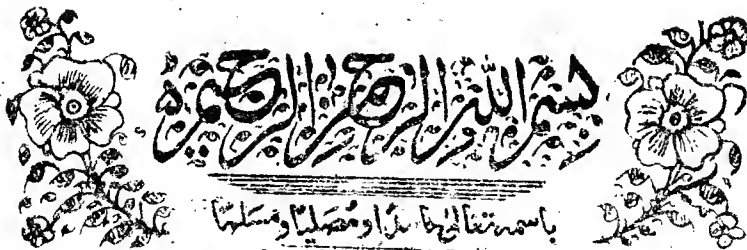 بسم الله الرحمن الرحيم
باسمہ تعالیٰ حامدًا و مصلیًا و مسلمًا